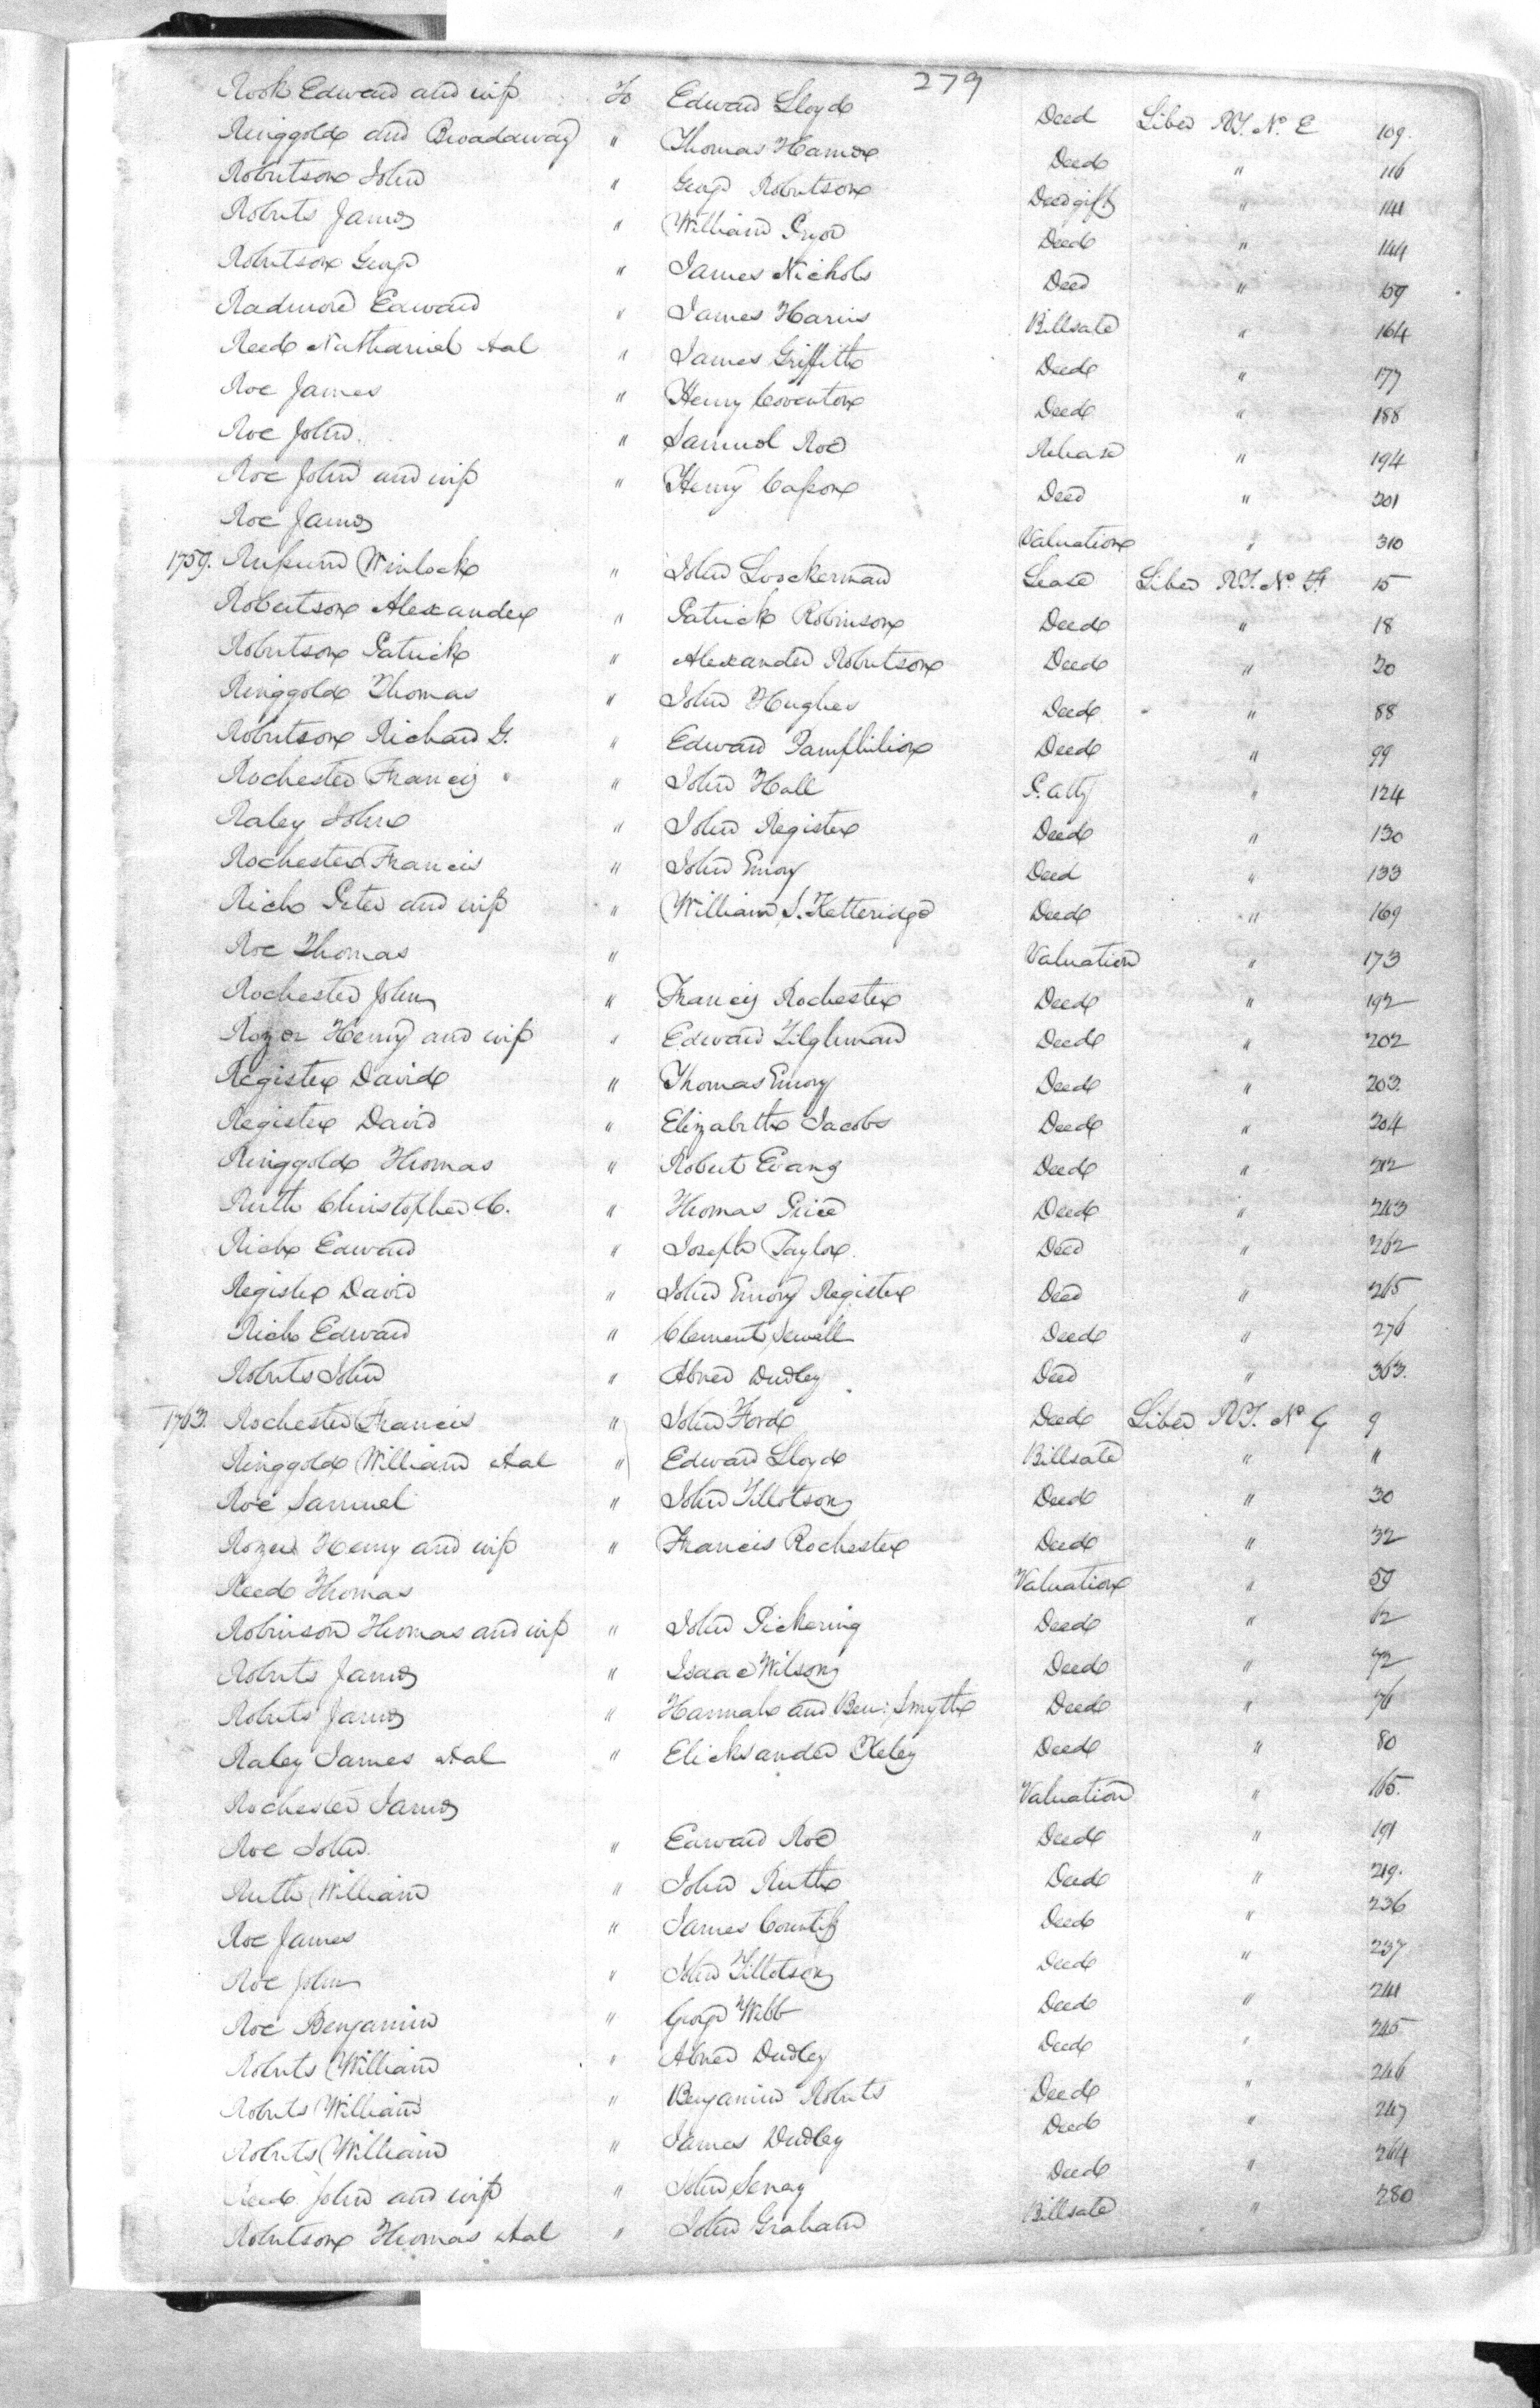 279
Rook Edward and wife To Edward Lloyd Deed Liber RT. No. E 109.
Ringgold and Broadaway " Thomas Hamer Deed " 116
Robertson John " George Robertson Deed gift " 141
Roberts James " William Pryor Deed " 144
Robertson George " James Nichols Deed " 159
Radmore Edward " James Harris Billsale " 164
Reed Nathaniel &al " James Griffith Deed " 177
Roe James " Henry Coventon Deed " 188
Roe John. " Samuel Roe Release " 194
Roe John and wife " Henry Casson Deed " 201
Roe James Valuation " 310
1759. Winlock " John Lockerman Lease Liber RT. No. F 15
Robertson Alexander " Patrick Robinson Deed " 18
Robertson Patrick " Alexander Robertson Deed " 20
Ringgold Thomas " John Hughes Deed " 88
Robertson Richard G. " Edward Pamphilion Deed " 99
Rochester Francis " John Hall P. atty " 124
Raley John " John Register Deed " 130
Rochester Francis " John Emory Deed " 133
Rich Peter and wife " William S. Ketteridge Deed " 169
Roe Thomas " Valuation " 173
Rochester John " Francis Rochester Deed " 192
Rozer Henry and wife " Edward Tilghman Deed " 202
Register David " Thomas Emory Deed " 203
Register David " Elizabeth Jacobs Deed " 204
Ringgold Thomas " Robert Evans Deed " 212
Ruth Christopher C. " Thomas Price Deed " 243
Rich Edward " Joseph Taylor. Deed " 262
Register David " John Emory Register Deed " 265
Rich Edward " Clement Sewell Deed " 276
Roberts John " Abner Dudley Deed " 363.
1763. Rochester Francis " John Ford Deed Liber RT. No G 9
Ringgold William &al " Edward Lloyd Billsale " "
Roe Samuel " John Tillotson Deed " 30
Rozer Henry and wife " Francis Rochester Deed " 32
Reed Thomas Valuation " 59
Robinson Thomas and wife " John Pickering Deed " 62
Roberts James " Isaac Wilson Deed " 72
Roberts James " Hannah and Ben: Smyth Deed " 76
Raley James &al " Elicksander Keley Deed " 80
Rochester James Valuation " 165.
Roe John. " Edward Roe Deed " 191
Ruth William " John Ruth Deed " 219.
Roe James " James Countiss Deed " 236
Roe John " John Tillotson Deed " 237
Roe Benjamin " George Webb Deed " 241
Roberts William " Abner Dudley Deed " 245
Roberts William " Benjamin Roberts Deed " 246
Roberts William " James Dudley Deed " 247
Reed John and wife " John Seney Deed " 264
Robertson Thomas &al " John Graham Billsale " 280